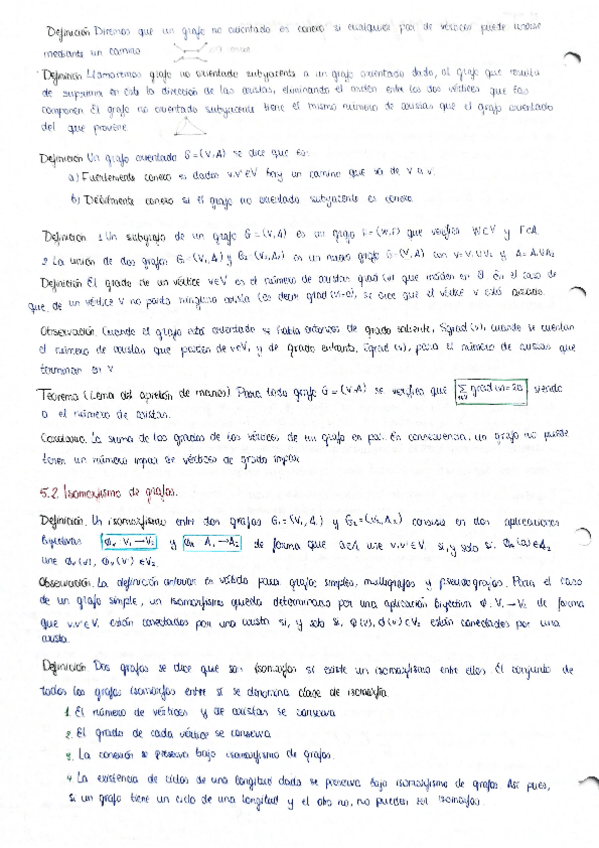 Definición Diremos que un grafo no orientado es conexo si cualquier par de vértices puede unirse
mediante un camino
Definición Llamaremos grafo no orientado subyacente a un grafo orientado dado, al grafo que resulta
de suprimir en este la dirección de las aristas, eliminando el orden entre los dos vértices que las
componen El grafo no orientado subyacente tiene el mismo número de aristas que el grafo orientado
del que proviene
Definición Un grafo orientado G=(V,A) se dice que es:
a) Fuertemente conexo si dados v,v'∈V hay un camino que va de v a v'.
b) Débilmente conexo si el grafo no orientado subyacente es conexo
Definición 1. Un subgrafo de un grafo G=(V,A) es un grafo que verifica W⊂V y Γ⊂A
2. La unión de dos grafos G₁=(V₁,A₁) y G₂=(V₂,A₂) es un nuevo grafo G=(V,A) con V=V₁∪V₂ y A=A₁∪A₂
Definición El grado de un vértice v∈V es el número de aristas grad(v) que inciden en él En el caso de
que de un vértice v no parta ninguna arista (es decir grad(v)=0), se dice que el vértice v está aislado.
Observación. Cuando el grafo está orientado se habla entonces de grado saliente, Sgrad(v), cuando se cuentan
el número de aristas que parten de v∈V, y de grado entrante, Egrad(v), para el número de aristas que
terminan en v
Teorema (Lema del apretón de manos) Para todo grafo G=(V,A) se verifica que Σ grad(v)=2a, siendo
a el número de aristas.
Corolario. La suma de los grados de los vértices de un grafo es par. En consecuencia, un grafo no puede
tener un número impar de vértices de grado impar
5.2. Isomorfismo de grafos.
Definición. Un isomorfismo entre dos grafos G₁=(V₁,A₁) y G₂=(V₂,A₂) consiste en dos aplicaciones
biyectivas Φv V₁→V₂ y ΦA A₁→A₂ de forma que a∈A₁ une v,v'∈V₁ si, y solo si ΦA(a)∈A₂
une Φv(v), Φv(v')∈V₂
Observación. La definición anterior es válida para grafos simples, multigrafos y pseudografos. Para el caso
de un grafo simple, un isomorfismo queda determinado por una aplicación biyectiva Φ: V₁→V₂ de forma
que v,v'∈V₁ están conectados por una arista si, y solo si, Φ(v),Φ(v')∈V₂ están conectados por una
arista.
Definición Dos grafos se dice que son isomorfos si existe un isomorfismo entre ellos. El conjunto de
todos los grafos isomorfos entre sí se denomina clase de isomorfía.
1. El número de vértices y de aristas se conserva
2. El grado de cada vértice se conserva
3. La conexión se preserva bajo isomorfismo de grafos.
4. La existencia de ciclos de una longitud dada se preserva bajo isomorfismo de grafos Así pues,
si un grafo tiene un ciclo de una longitud y el otro no, no pueden ser isomorfos.